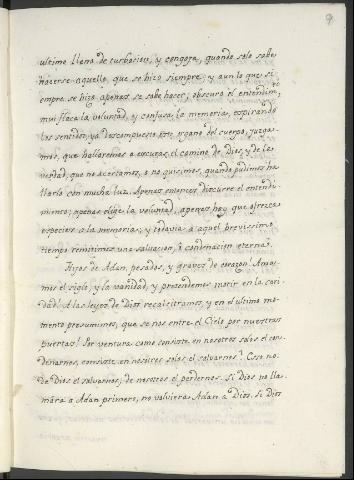 9
ultimo llena de turbacion, y congoja, quando solo sabe
hacerse aquello, que se hizo siempre; y aun lo que si-
empre se hizo apenas se sabe hacer; obscuro el entendim.to
mui flaca la voluntad, y confusa la memoria, espirando
los sentidos, ya descompuesto este organo del cuerpo, juzga-
mos, que hallaremos a escuras el camino de Dios, y de la
verdad, que no acertamos, o no quisimos, quando pudimos ha-
llarlo con mucha luz. Apenas entonces discurre el entendi-
miento; apenas elige la voluntad, apenas hay que ofrezca
especies a la memoria; y todavia a aquel brevissimo
tiempo remitimos una salvacion, ò condenacion eterna?
Hijos de Adan, pesados, y graves de corazon! Ama-
mos el siglo, y la vanidad, y pretendemos morir en la cari-
dad! A las leyes de Dios recalcitramos, y en el ultimo mo-
mento presumimos, que se nos entre el Cielo por nuestras
puertas! Por ventura como consiste en nosotros solos el con-
denarnos, consiste en nosotros solos el salvarnos? Esso no:
de Dios el salvarnos, de nosotros el perdernos. Si Dios no lla-
mára a Adan primero, no volviera Adan a Dios. Si Dios